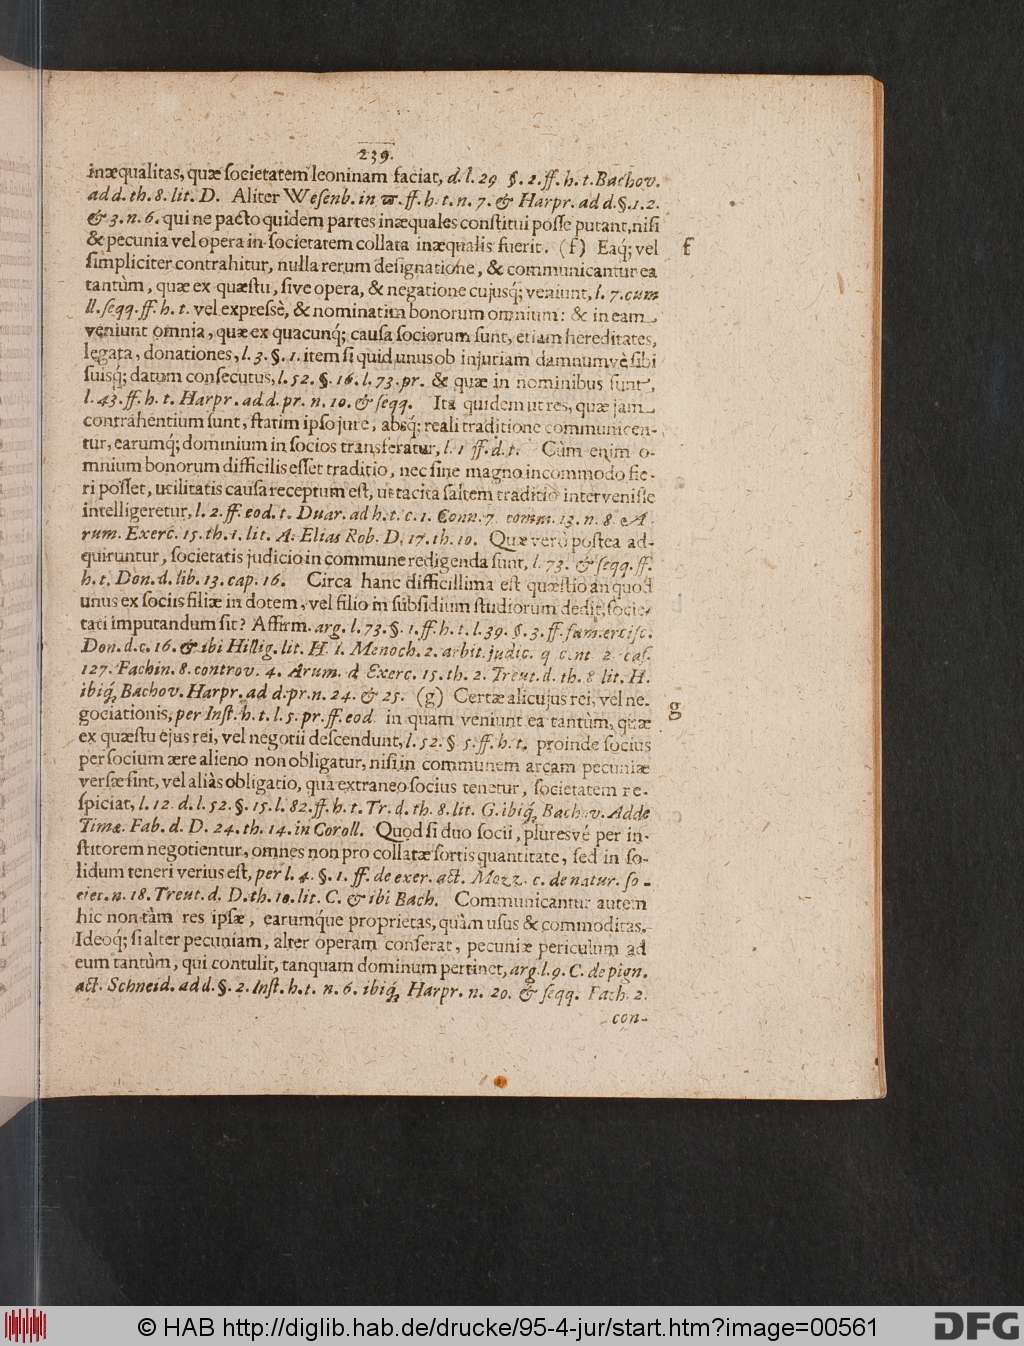 239.
inæqualitas, quæ ſocietatem leoninam faciat, d. l. 29 §. 2. ff. h. t. Bachov.
ad d. th. 8. lit. D. Aliter Weſenb. in π. ff. h. t. n. 7. & Harpr. ad d. §. 1. 2.
& 3. n. 6. qui ne pacto quidem partes inæquales conſtitui poſſe putant, niſi
& pecunia vel opera in ſocietatem collata inæqualis fuerit. (f) Eaq; vel
ſimpliciter contrahitur, nulla rerum deſignatione, & communicantur ea
tantùm, quæ ex quæſtu, ſive opera, & negatione cujusq; veniunt, l. 7. cum
ll. ſeqq. ff. h. t. vel expreſsè, & nominatim bonorum omnium: & in eam
veniunt omnia, quæ ex quacunq; cauſa ſociorum ſunt, etiam hereditates,
legata, donationes, l. 3. §. 1. item ſi quid unus ob injuriam damnumvè ſibi
ſuisq; datum conſecutus, l. 52. §. 16. l. 73. pr. & quæ in nominibus ſunt,
l. 43. ff. h. t. Harpr. ad d. pr. n. 10. & ſeqq. Ita quidem ut res, quæ jam
contrahentium ſunt, ſtatim ipſo jure, absq; reali traditione communicen-
tur, earumq; dominium in ſocios transferatur, l. 1 ff. d. t. Cùm enim o-
mnium bonorum difficilis eſſet traditio, nec ſine magno incommodo fie-
ri poſſet, utilitatis cauſa receptum eſt, ut tacita ſaltem traditio interveniſſe
intelligeretur, l. 2. ff. eod. t. Duar. ad h. t. c. 1. Conn. 7. comm. 13. n. 8. A-
rum. Exerc. 15. th. 1. lit. A. Elias Rob. D. 17. th. 10. Quæ verò poſtea ad-
quiruntur, ſocietatis judicio in commune redigenda ſunt, l. 73. & ſeqq. ff.
h. t. Don. d. lib. 13. cap. 16. Circa hanc difficillima eſt quæſtio an quod
unus ex ſociis filiæ in dotem, vel filio in ſubſidium ſtudiorum dedit, ſocie-
tati imputandum ſit? Affirm. arg. l. 73. §. 1. ff. h. t. l. 39. §. 3. ff. fam. erciſc.
Don. d. c. 16. & ibi Hillig. lit. H. i. Menoch. 2. arbit. judic. q. cent. 2. caſ.
127. Fachin. 8. controv. 4. Arum. d. Exerc. 15. th. 2. Treut. d. th. 8 lit. H.
ibiq; Bachov. Harpr. ad d. pr. n. 24. & 25. (g) Certæ alicujus rei, vel ne-
gociationis, per Inſt. h. t. l. 5. pr. ff. eod. in quam veniunt ea tantùm, quæ
ex quæſtu ejus rei, vel negotii deſcendunt, l. 52. § 5. ff. h. t. proinde ſocius
per ſocium ære alieno non obligatur, niſi in communem arcam pecuniæ
verſæ ſint, vel aliàs obligatio, quâ extraneo ſocius tenetur, ſocietatem re-
ſpiciat, l. 12. d. l. 52. §. 15. l. 82. ff. h. t. Tr. d. th. 8. lit. G. ibiq; Bachov. Adde
Timæ. Fab. d. D. 24. th. 14. in Coroll. Quod ſi duo ſocii, pluresvé per in-
ſtitorem negotientur, omnes non pro collatæ ſortis quantitate, ſed in ſo-
lidum teneri verius eſt, per l. 4. §. 1. ff. de exer. act. Mozz. c. de natur. ſo-
ciet. n. 18. Treut. d. D. th. 10. lit. C. & ibi Bach. Communicantur autem
hic non tàm res ipſæ, earumq́ue proprietas, quàm uſus & commoditas.
Ideoq; ſi alter pecuniam, alter operam conferat, pecuniæ periculum ad
eum tantùm, qui contulit, tanquam dominum pertinet, arg. l. 9. C. de pign.
act. Schneid. ad d. §. 2. Inſt. h. t. n. 6. ibiq; Harpr. n. 20. & ſeqq. Fach. 2.
con-
f
g
© HAB http://diglib.hab.de/drucke/95-4-jur/start.htm?image=00561
DFG